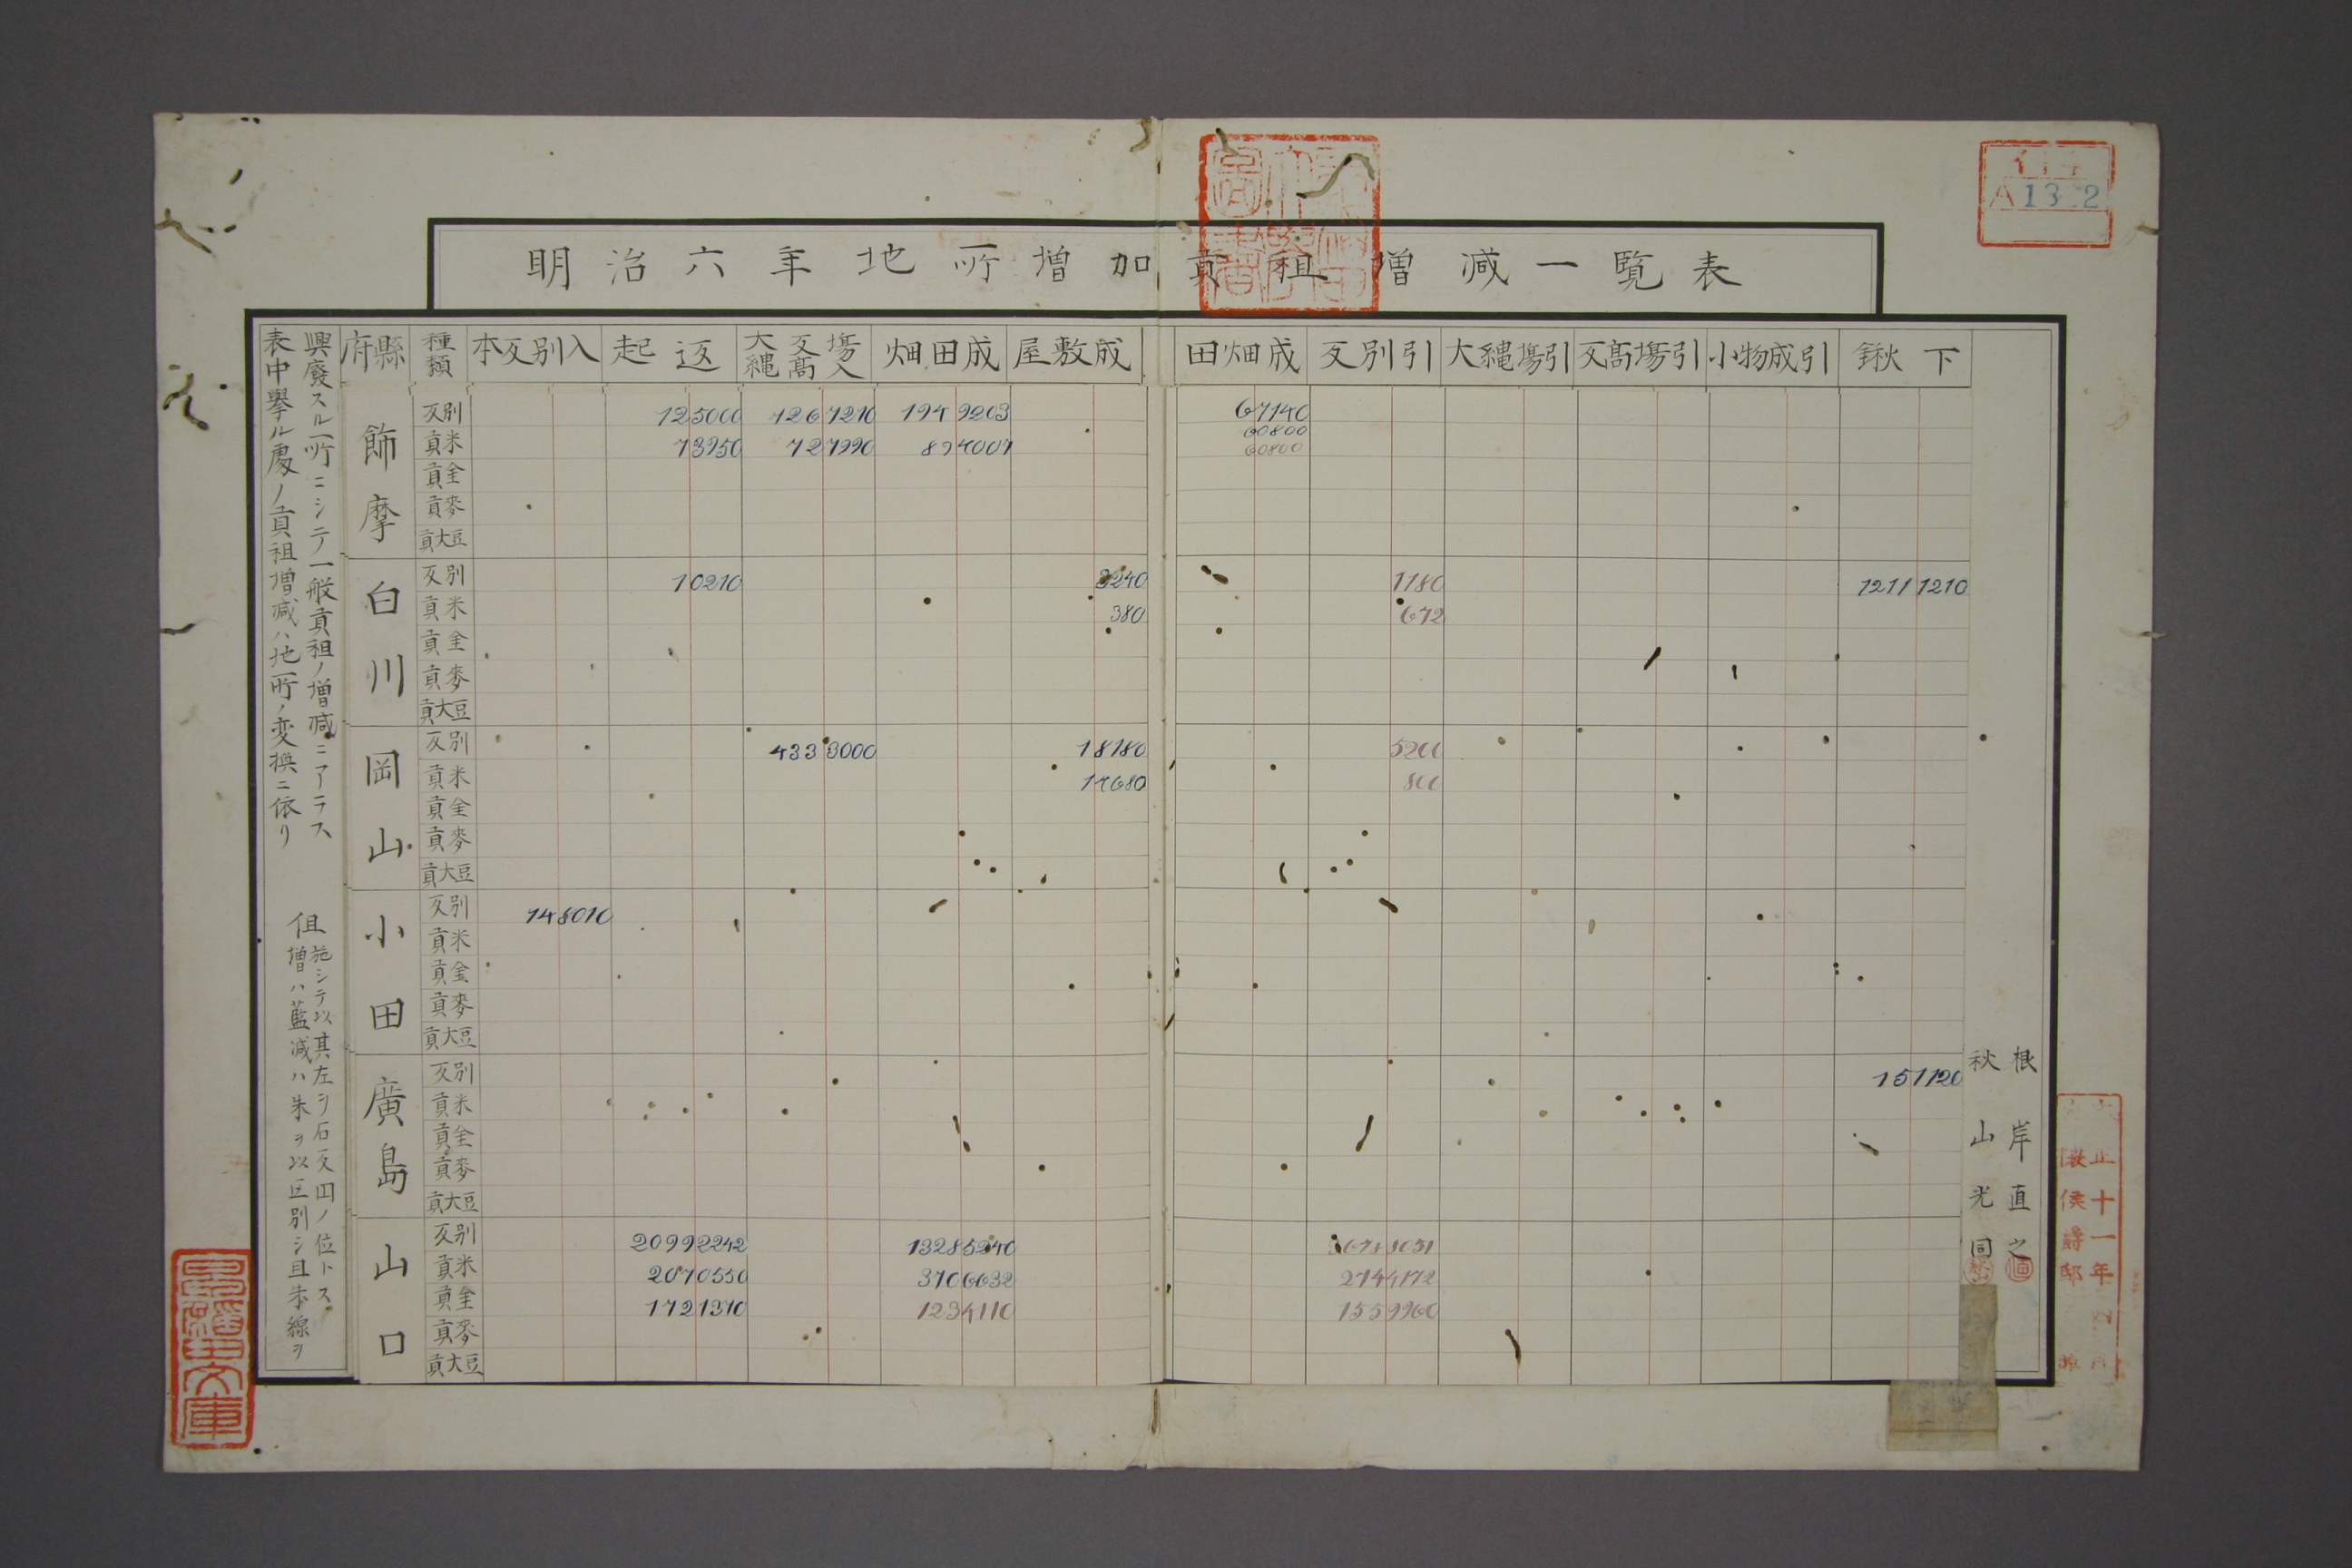 明治六年地所増加貢租増減一覧表
府縣 種類 本反別入 起返 大縄反高場入 畑田成 屋敷成 田畑成 反別引 大縄場引 反高場引 小物成引 鍬下
飾摩
反別 125000 126 1210 194 9203 67140
貢米 73950 72 7990 60800
60800
貢金
貢麥
貢大豆
白川
反別 10210 3240 1180 1211 1210
貢米 380 672
貢金
貢麥
貢大豆
岡山
反別 433 3000 18180 5200
貢米 14680 800
貢金
貢麥
貢大豆
小田
反別 148010
貢米
貢金
貢麥
貢大豆
廣島
反別 151120
貢米
貢金
貢麥
貢大豆
山口
反別 20992242 13285240
貢米 2070550 3706632 2744172
貢金 1721370 1234110 1559960
貢麥
貢大豆
表中擧ル處ノ貢祖増減ハ地所ノ変換ニ依リ
興廢スル所ニシテ一般貢祖ノ増減ニアラス
但
施シテ以其左ヲ石反円ノ位トス
増ハ藍減ハ朱ヲ以区別シ且朱線ヲ
根岸直之
秋山光同
A13 2
文庫
正十一年
侯爵邸